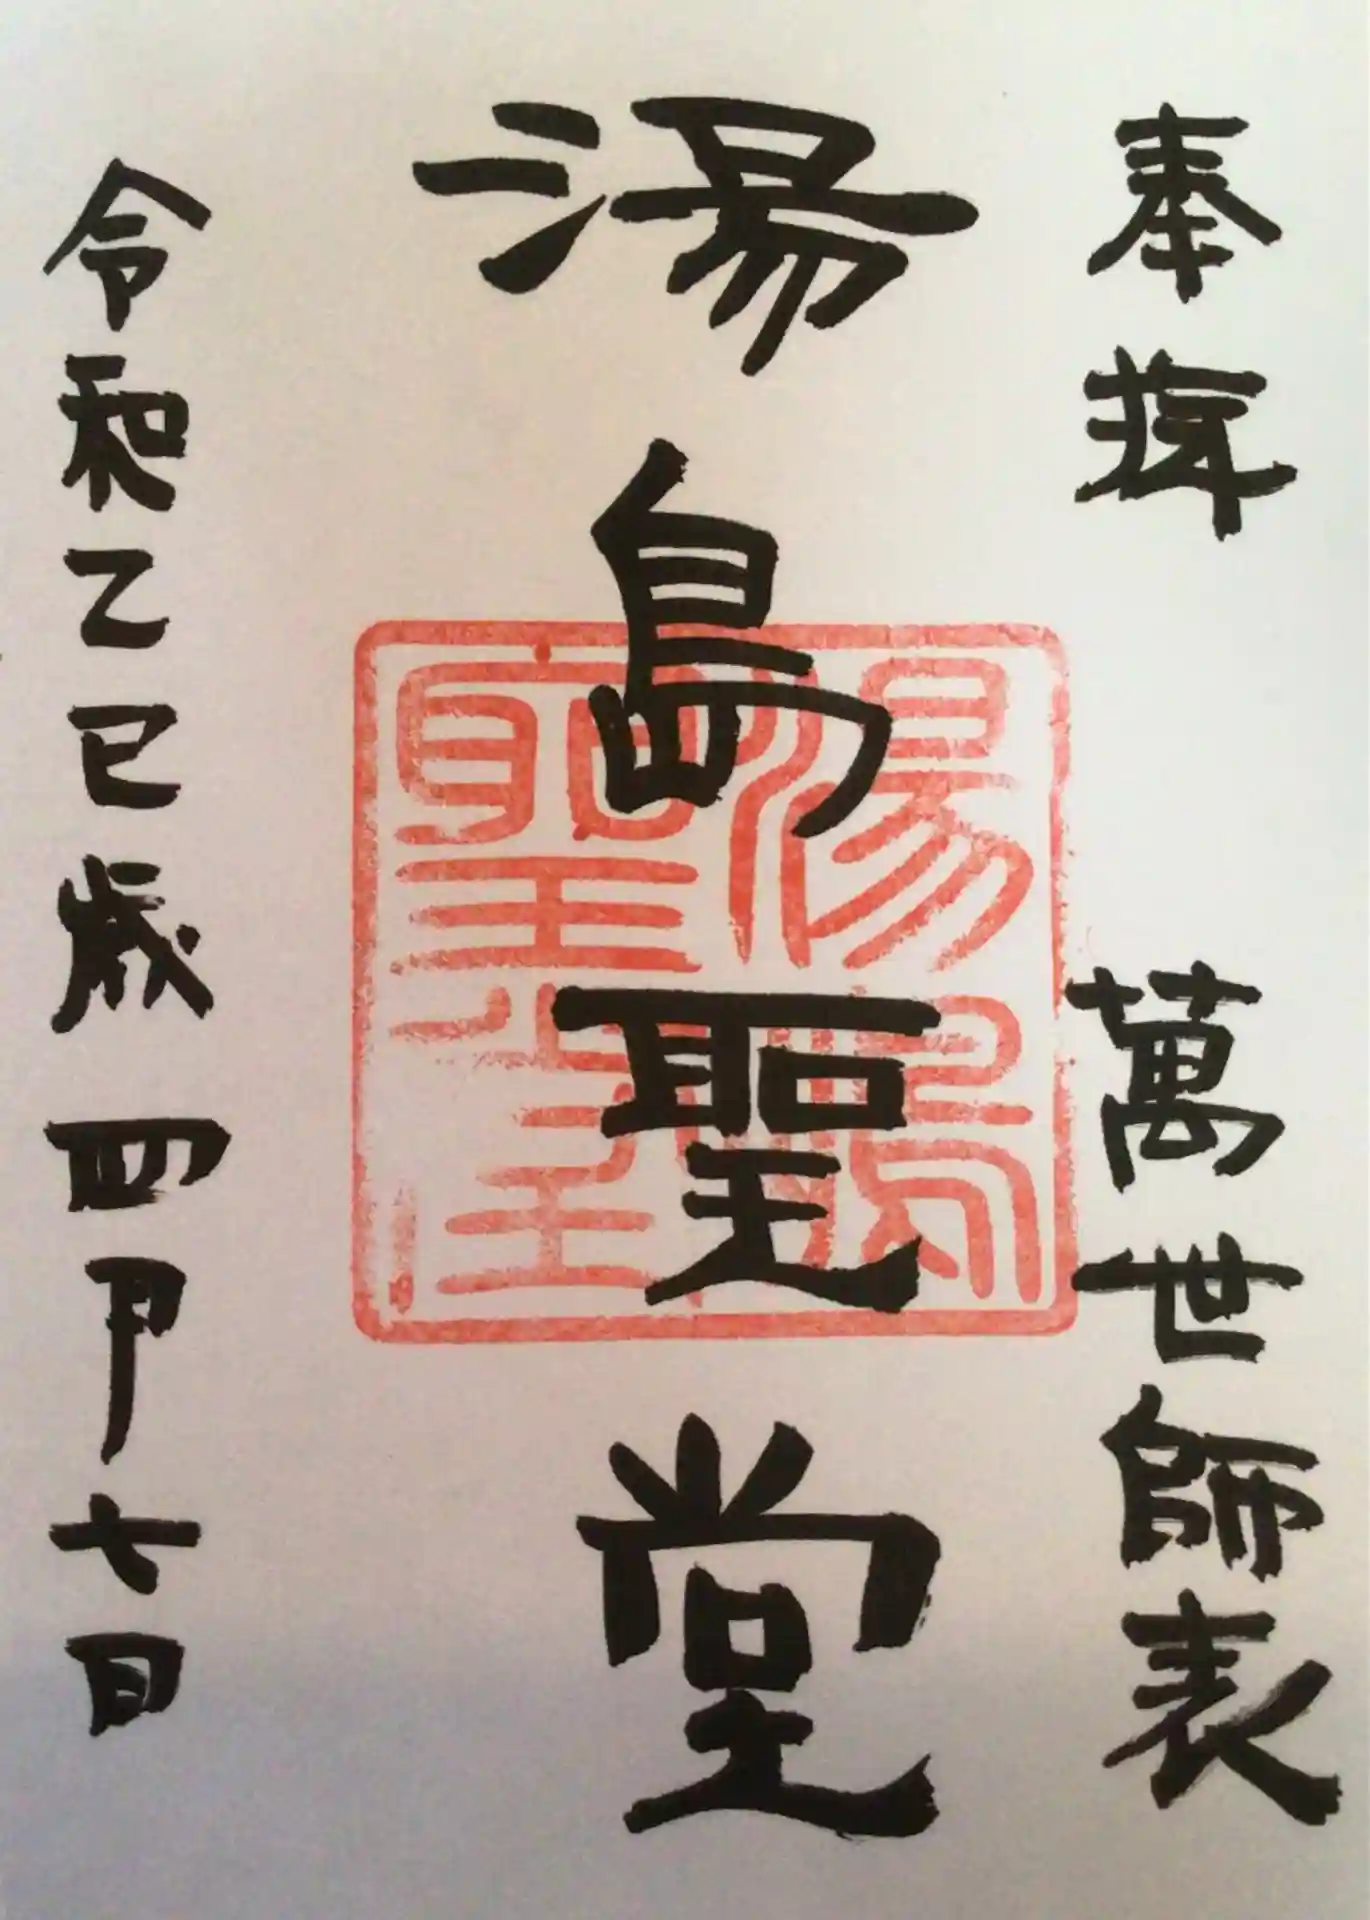 奉拜 萬世師表
湯島聖堂
湯島聖堂
令和乙巳歳 四月七日